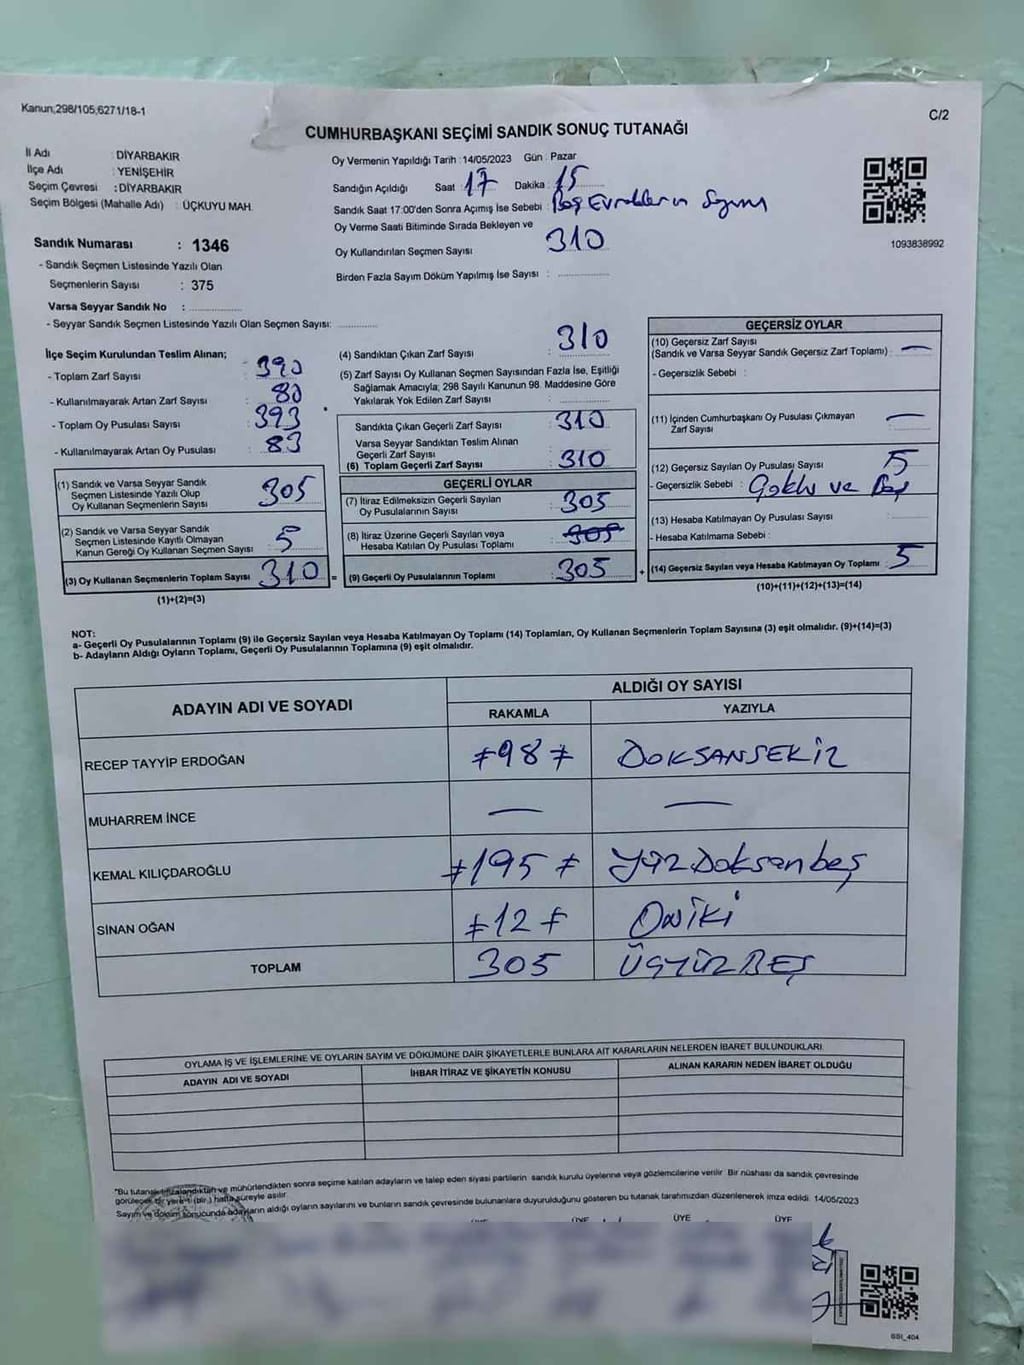 Kanun;298/105;6271/18-1
C/2
CUMHURBAŞKANI SEÇİMİ SANDIK SONUÇ TUTANAĞI
İl Adı : DİYARBAKIR
İlçe Adı : YENİŞEHİR
Seçim Çevresi : DİYARBAKIR
Seçim Bölgesi (Mahalle Adı) : ÜÇKUYU MAH.
Sandık Numarası : 1346
- Sandık Seçmen Listesinde Yazılı Olan
Seçmenlerin Sayısı : 375
Varsa Seyyar Sandık No :
- Seyyar Sandık Seçmen Listesinde Yazılı Olan Seçmen Sayısı:
Oy Vermenin Yapıldığı Tarih : 14/05/2023 Gün : Pazar
Sandığın Açıldığı Saat : 17 Dakika : 15
Sandık Saat 17:00'den Sonra Açımış İse Sebebi : Boş Evrakların Sayımı
Oy Verme Saati Bitiminde Sırada Bekleyen ve
Oy Kullandırılan Seçmen Sayısı : 310
Birden Fazla Sayım Döküm Yapılmış İse Sayısı :
1093838992
İlçe Seçim Kurulundan Teslim Alınan;
- Toplam Zarf Sayısı : 390
- Kullanılmayarak Artan Zarf Sayısı : 80
- Toplam Oy Pusulası Sayısı : 393
- Kullanılmayarak Artan Oy Pusulası : 83
(1) Sandık ve Varsa Seyyar Sandık
Seçmen Listesinde Yazılı Olup
Oy Kullanan Seçmenlerin Sayısı : 305
(2) Sandık ve Varsa Seyyar Sandık
Seçmen Listesinde Kayıtlı Olmayan
Kanun Gereği Oy Kullanan Seçmen Sayısı : 5
(3) Oy Kullanan Seçmenlerin Toplam Sayısı : 310 =
(1)+(2)=(3)
(4) Sandıktan Çıkan Zarf Sayısı : 310
(5) Zarf Sayısı Oy Kullanan Seçmen Sayısından Fazla İse, Eşitliği
Sağlamak Amacıyla; 298 Sayılı Kanunun 98. Maddesine Göre
Yakılarak Yok Edilen Zarf Sayısı :
Sandıkta Çıkan Geçerli Zarf Sayısı : 310
Varsa Seyyar Sandıktan Teslim Alınan
Geçerli Zarf Sayısı :
(6) Toplam Geçerli Zarf Sayısı : 310
GEÇERLİ OYLAR
(7) İtiraz Edilmeksizin Geçerli Sayılan
Oy Pusulalarının Sayısı : 305
(8) İtiraz Üzerine Geçerli Sayılan veya
Hesaba Katılan Oy Pusulası Toplamı : 305
(9) Geçerli Oy Pusulalarının Toplamı : 305 +
GEÇERSİZ OYLAR
(10) Geçersiz Zarf Sayısı
(Sandık ve Varsa Seyyar Sandık Geçersiz Zarf Toplamı) : —
- Geçersizlik Sebebi :
(11) İçinden Cumhurbaşkanı Oy Pusulası Çıkmayan
Zarf Sayısı : —
(12) Geçersiz Sayılan Oy Pusulası Sayısı : 5
- Geçersizlik Sebebi : ve Boş
(13) Hesaba Katılmayan Oy Pusulası Sayısı :
- Hesaba Katılmama Sebebi :
(14) Geçersiz Sayılan veya Hesaba Katılmayan Oy Toplamı : 5
(10)+(11)+(12)+(13)=(14)
NOT:
a- Geçerli Oy Pusulalarının Toplamı (9) ile Geçersiz Sayılan veya Hesaba Katılmayan Oy Toplamı (14) Toplamları, Oy Kullanan Seçmenlerin Toplam Sayısına (3) eşit olmalıdır. (9)+(14)=(3)
b- Adayların Aldığı Oyların Toplamı, Geçerli Oy Pusulalarının Toplamına (9) eşit olmalıdır.
ADAYIN ADI VE SOYADI
ALDIĞI OY SAYISI
RAKAMLA YAZIYLA
RECEP TAYYİP ERDOĞAN ≠98≠ DOKSANSEKİZ
MUHARREM İNCE — —
KEMAL KILIÇDAROĞLU ≠195≠ YüzDoksanbeş
SİNAN OĞAN ≠12≠ ONİKİ
TOPLAM 305 ÜÇYÜZBEŞ
OYLAMA İŞ VE İŞLEMLERİNE VE OYLARIN SAYIM VE DÖKÜMÜNE DAİR ŞİKAYETLERLE BUNLARA AİT KARARLARIN NELERDEN İBARET BULUNDUKLARI
ADAYIN ADI VE SOYADI İHBAR İTİRAZ VE ŞİKAYETİN KONUSU ALINAN KARARIN NEDEN İBARET OLDUĞU
"Bu tutanak imzalandıktan ve mühürlendikten sonra seçime katılan adayların ve talep eden siyasi partilerin sandık kurulu üyelerine veya gözlemcilerine verilir. Bir nüshası da sandık çevresinde
görülecek bir yere 1 (bir ) hafta süreyle asılır.
Sayım ve döküm sonucunda adayların aldığı oyların sayılarını ve bunların sandık çevresinde bulunanlara duyurulduğunu gösteren bu tutanak tarafımızdan düzenlenerek imza edildi. 14/05/2023
ÜYE ÜYE ÜYE ÜYE
SSI_404